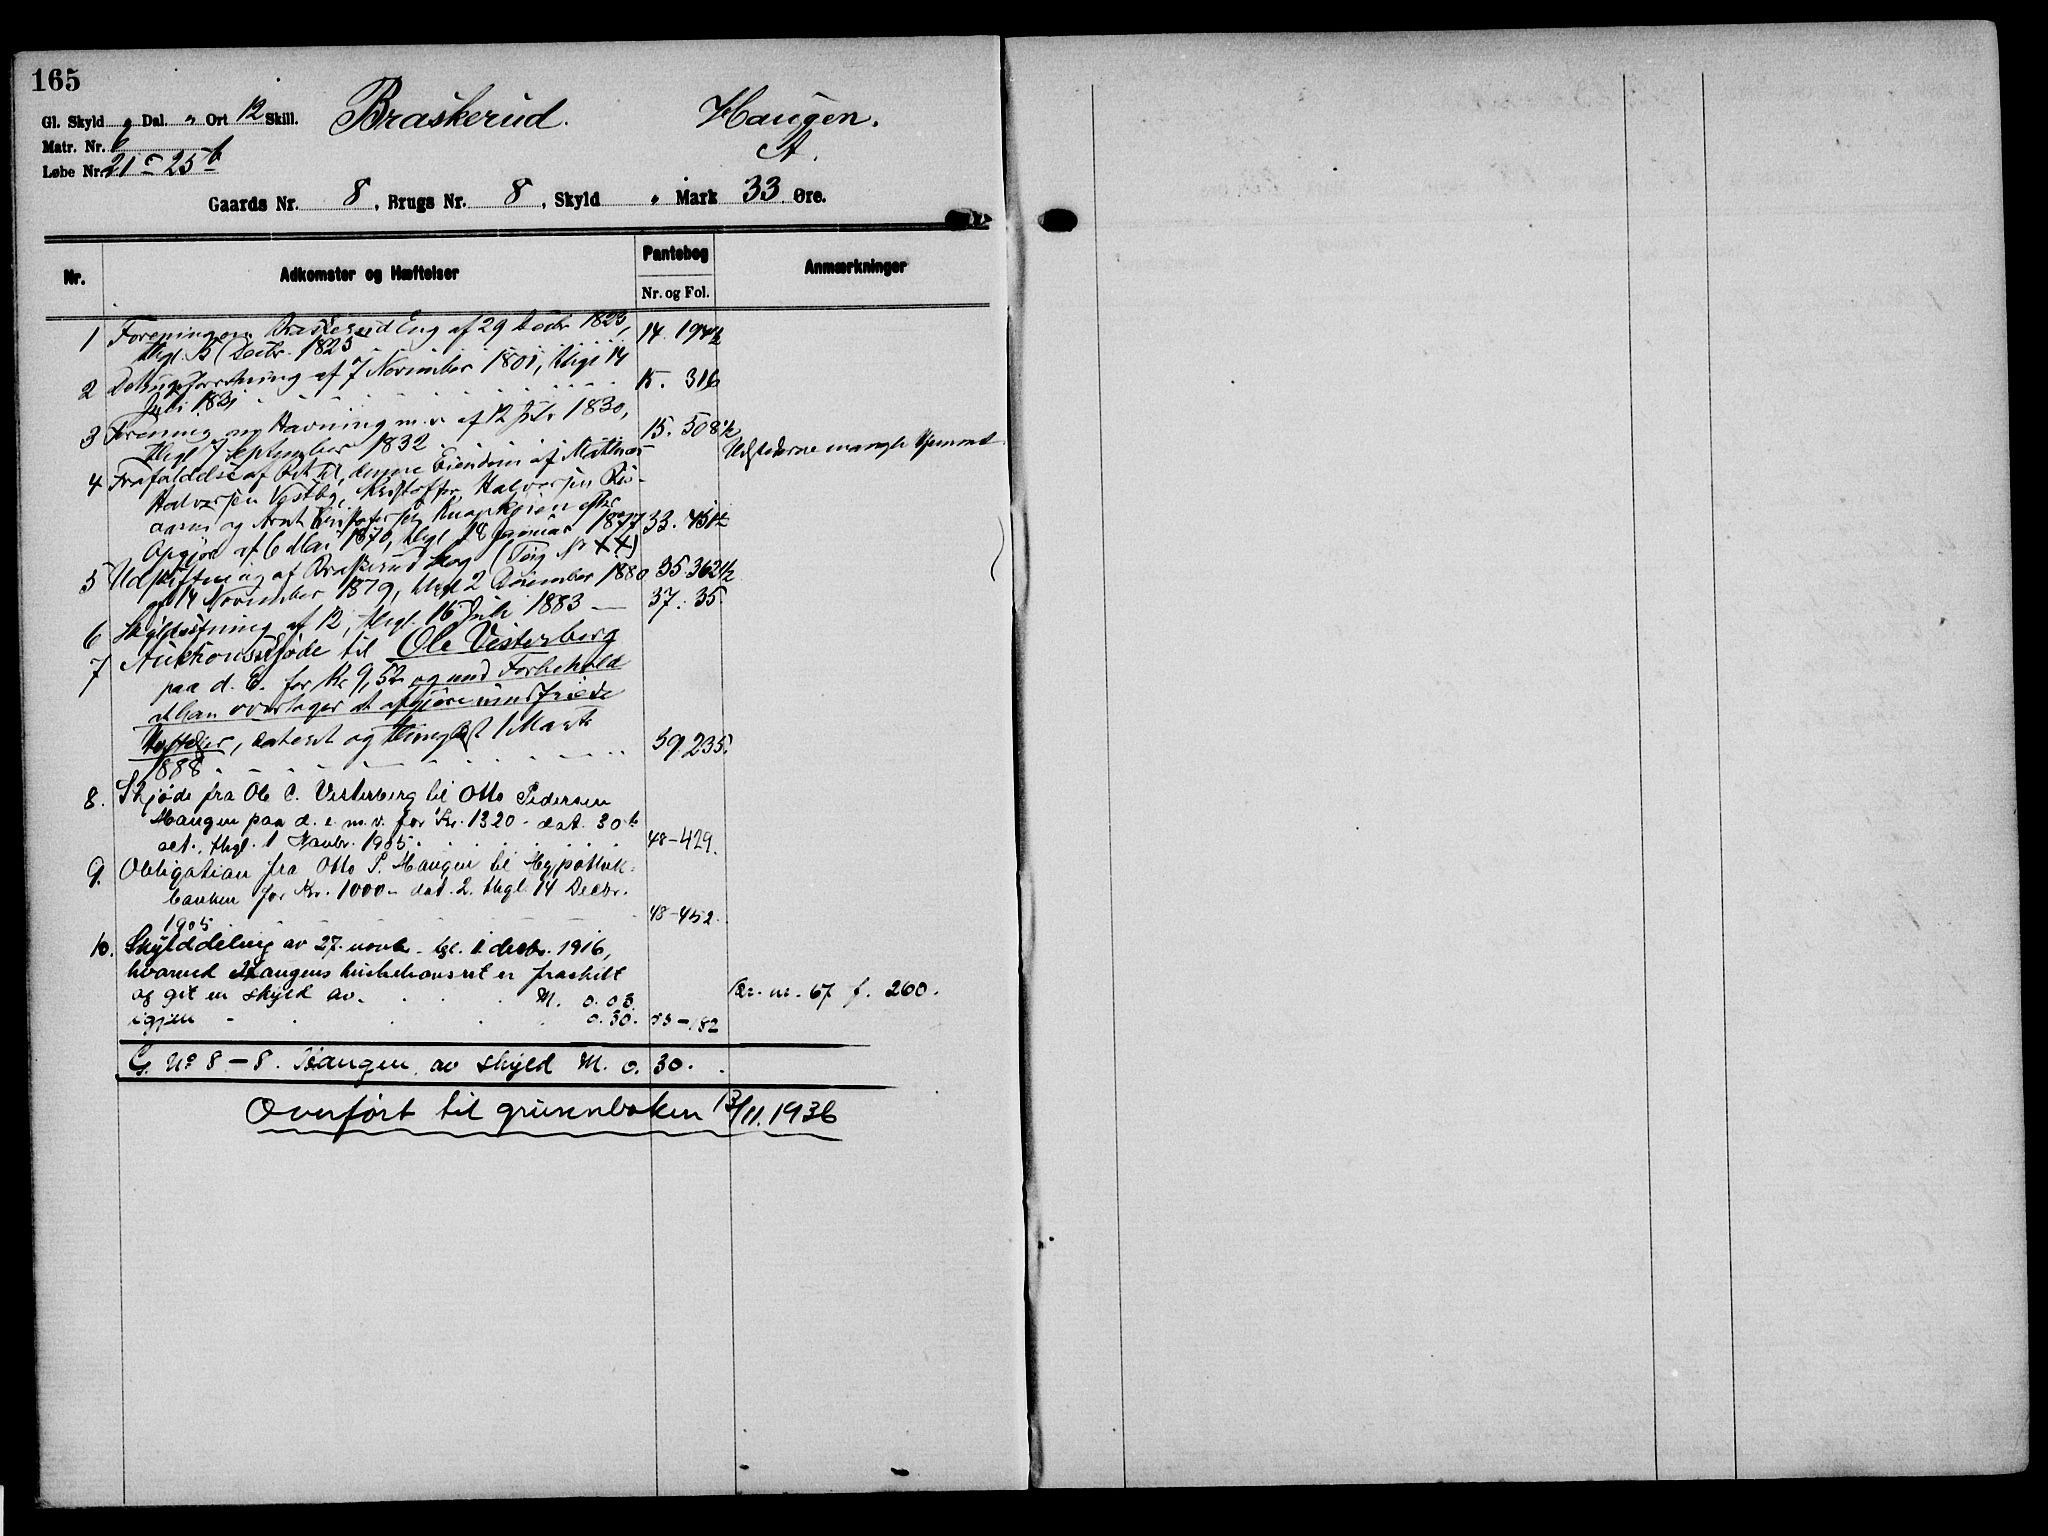 165
Gl. Skyld " Dal. " Ort 12 Skill. Braskerud. Haugen.
Matr. Nr. 6 A.
Løbe Nr. 21 c - 25 b
Gaards Nr. 8, Brugs Nr. 8, Skyld " Mark 33 Øre.
Nr. Adkomster og Hæftelser Pantebog Anmærkninger
Nr. og Fol.
1 Forening om Braskerud Eng af 29 Decbr 1823,
Thgl. Decbr. 1823 14. 194½
2 af 7 November 1801, thgl 14
Juli 1831 15. 316
3 Forening om Havning m.v. af 12 Juli 1830,
Thgl 7 September 1832 15. 508½
Udstederne mangle Hjemmel
4 Frafaldelse af Ret til denne Eiendom af Mathias
Halvorsen Vestby, Kristoffer Halvorsen
og Arnt Kristofersen efter
Opgjør af 6 Mai 1870, thgl 18 Januar 1877 33. 451½
5 Udskiftning af Braskerud Skog (Tørg N° XX)
af 14 November 1879, thgl 2 December 1880 35-362½
6 Skyldsætning af 12, thgl. 16 Juli 1883 37. 35.
7 Auktionsskjøde til Ole Vesterberg
paa d. E. for Kr 9,52 og med Forbehold
at han overtager at afgjøre
Hæftelser, dateret og thinglyst 1 Marts
1888 39 235.
8. Skjøde fra Ole C. Vesterberg til Otto Pedersen
Haugen paa d. e. m. v. for Kr. 1320 - dat. 30te
oct., thgl. 1 Novbr. 1905 48-429.
9. Obligation fra Otto P. Haugen til Hypothek-
banken for Kr. 1000 - dat. 2. thgl 14 Decbr.
1905 48-452.
10. Skylddeling av 27. novbr. tgl. 1 decbr. 1916,
hvorved Haugens er fraskilt
og git en skyld av . . . M. 0.03 Gr. nr. 67 f. 260.
igjen - . . . . 0.30. 53-182
G. No 8-8. Haugen, av skyld M. 0.30.
Overført til grunnboken 13/11.1936